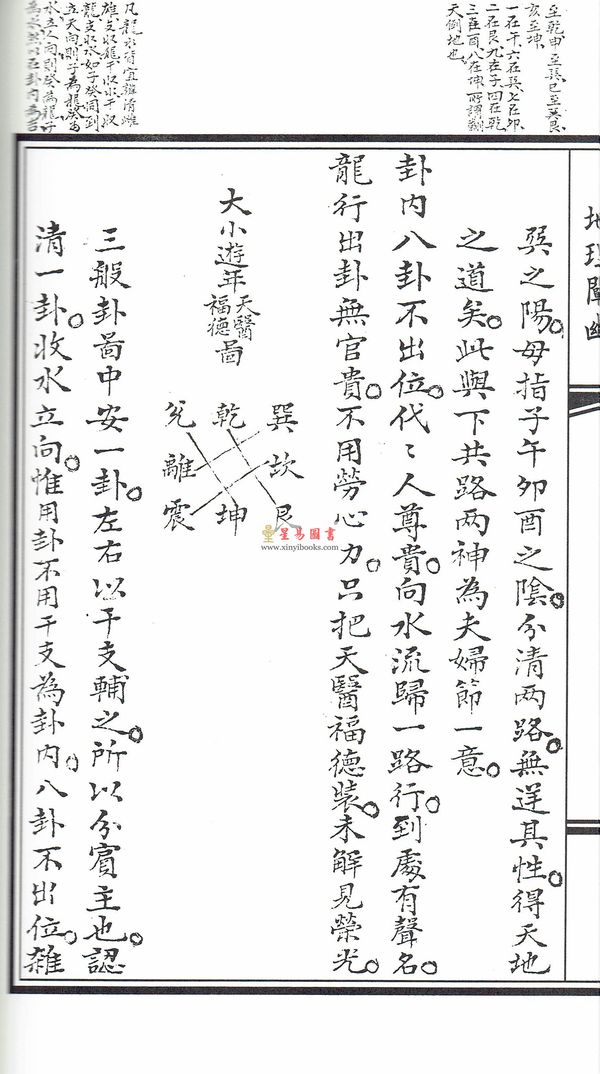 至乾申至巽巳至艮
亥至坤
一在午六在巽七在卯
二在艮九在子四在乾
三在酉八在坤所謂翻
天倒地也
凡龍水皆宜雜清雌
雄支收龍干收水干收
龍支收水如子癸同到
立天向則子為龍癸為
水立人向則癸為龍子
為水
地理闡幽
巽之陽。毋指子午卯酉之陰。分清两路。無逆其性。得天地
之道矣。此與下共路两神為夫婦節一意。
卦内八卦不出位。代〻人尊貴。向水流歸一路行。到處有聲名。
龍行出卦無官貴。不用勞心力。只把天醫福德裝。未解見榮光。
大小遊年天醫福德圖
巽 乾 兌
坎 離
艮 坤 震
星易圖書
www.xinyibooks.com
三般卦啚中安一卦。左右以干支輔之。所以分賓主也。認
清一卦。收水立向。惟用卦不用干支為卦内。八卦不出位。雜